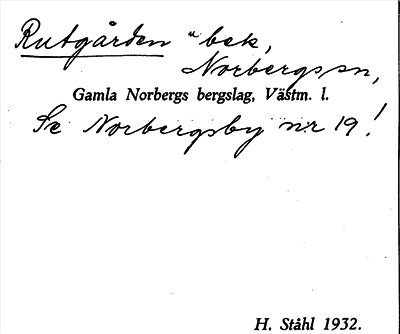 Rutgården "bek,
Norbergs sn,
Gamla Norbergs bergslag, Västm. l.
Se Norbergsby nr 19!
H. Ståhl 1932.